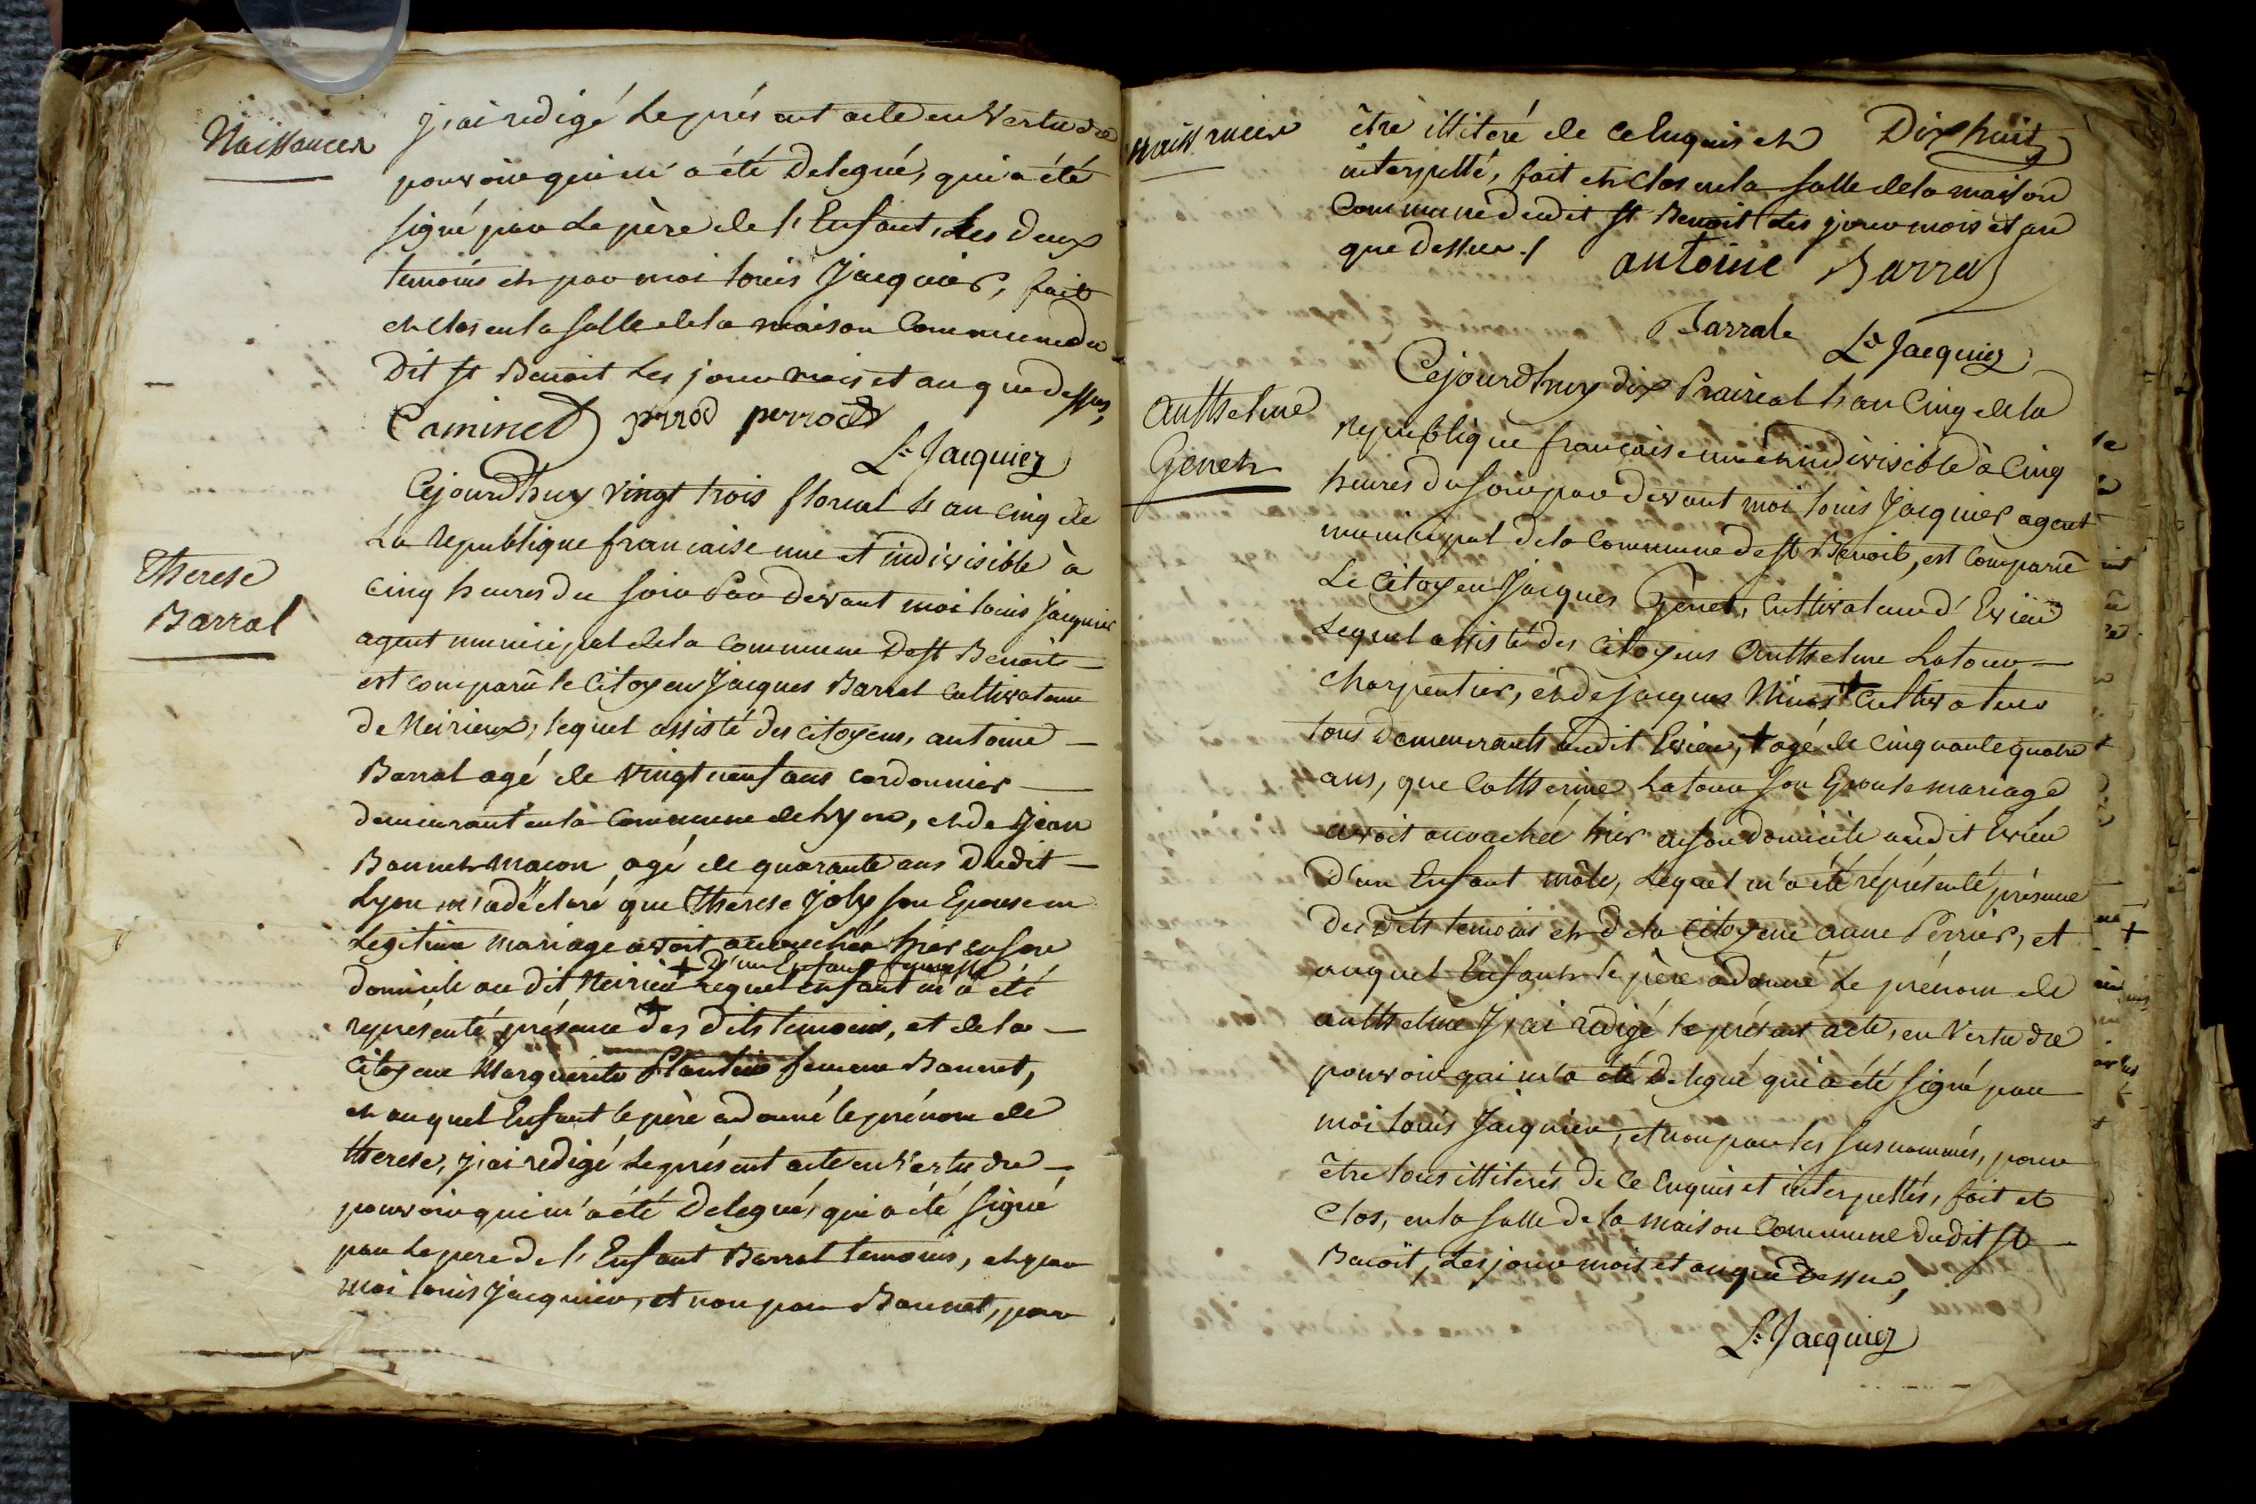 Naissances
j'ai redigé le présent acte en Vertu du
pouvoir qui m'a été Delegué, qui a été
signé par le père de l'Enfant, Les deux
temoins et par moi Louis Jacquier, fait
et clos en la salle de la maison Commune du
Dit st Benoit Les jour mois et an que dessus,
Caminet perrod perrod
Ls Jacquier
Therese
Barral
Cejourdhuy vingt trois floreal l'an Cinq de
La Republique francaise une et indivisible à
Cinq heures du soir Par devant moi Louis Jacquier
agent municipal de la Commune De st Benoit
est comparû le Citoyen Jacques Barral Cultivateur
de Meirieux, lequel assisté des citoyens, antoine
Barral agé de vingt neuf ans cordonnier
demeurant en la Commune de Lyon, et de Jean
Bonnet macon agé de quarante ans Dudit
Lyon m'a déclaré que Thérese Joly son Epouse en
Legitime mariage avoit accouchée hier en son
+ D'un Enfant femelle
domicile au dit Meirieu Lequel enfant m'a été
représenté présence des dits temoins, et de la
Citoyene Marguerite femme Bonnet,
et auquel Enfant le père a donné le prénom de
therese, j'ai redigé le présent acte en Vertu du
pouvoir qui m'a été Delegué, qui a été signé
par le pere de l'Enfant Barral temoins, et par
moi Louis Jacquier, et non par Bonnet, pour
Naissances
être illiteré de ce Enquis et Dix huit
interpellé, fait et Clos en la salle de la maison
Commune dudit st Benoit Les jour mois et an
que dessus /. antoine Barral
Barral Ls Jacquier
Anthelme
Genet
Cejourdhuy dix Prairial l'an Cinq de la
Republique française une et indivisible à Cinq
heures du soir par devant moi Louis Jacquier agent
municipal de la Commune de st Benoit, est Comparû
Le Citoyen Jacques Genet, Cultivateur d'Evieu
Lequel assisté des Citoyens Anthelme Latour
Charpentier, et de jacques + Cultivateur
tous Demeurants audit Evieu, + agé de Cinquante quatre
ans, que Catherine Latour son Epouse mariage
avoit accouchée hier en son domicile audit Evieu
d'un Enfant mâle, Lequel m'a été réprésenté présence
des Dits temoins et de la Citoyene anne Perrier, et
auquel Enfant le père a donné Le prénom de
anthelme J'ai rédigé le présent acte, en Vertu du
pouvoir qui m'a été Delegué qui a été signé par
moi Louis Jacquier, et non par les susnommés, pour
être tous illiterés de ce Enquis et interpellés, fait et
Clos, en la salle de la maison Commune dudit st
Benoit, Les jour mois et an que Dessus,
Ls Jacquier